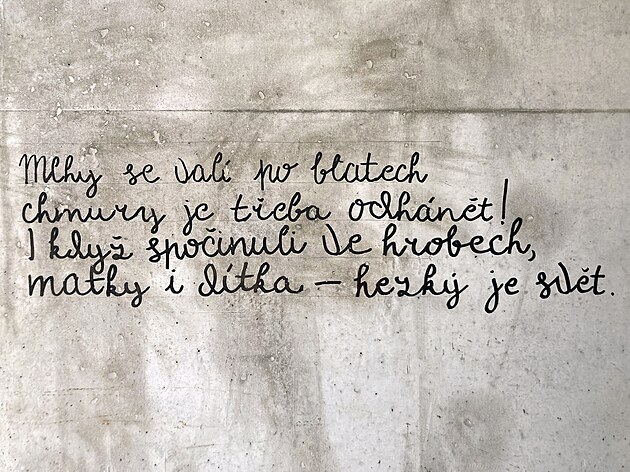 Mlhy se valí po blatech
chmury je třeba odhánět!
I když spočinuli ve hrobech,
matky i dítka – hezký je svět.